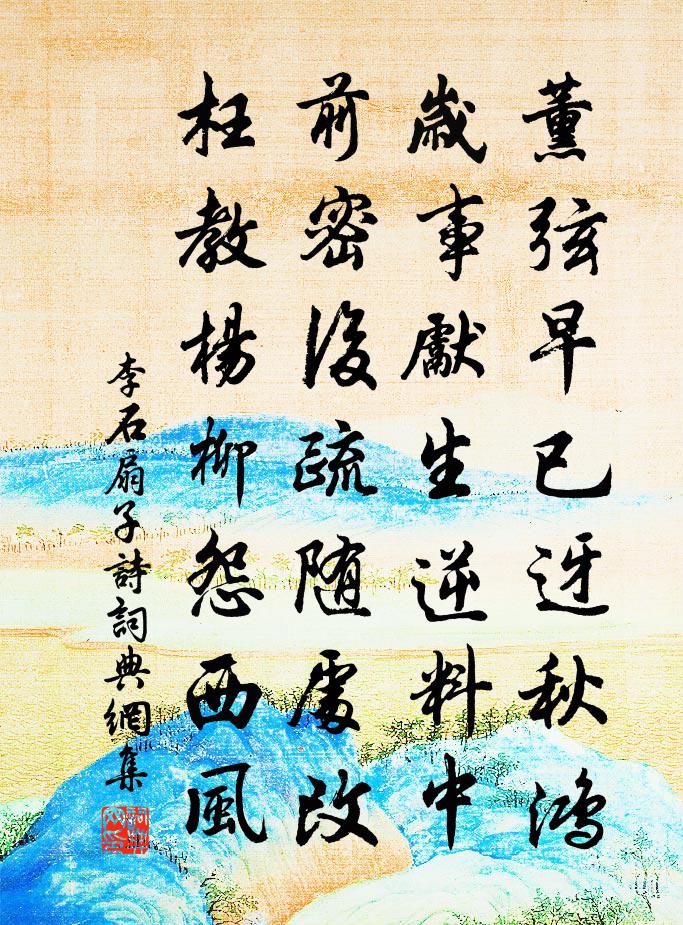 薰弦早已迓秋鴻
歲事獻生逆料中
前密後疏随處改
枉教楊柳怨西風
李石扇子詩詞典網集